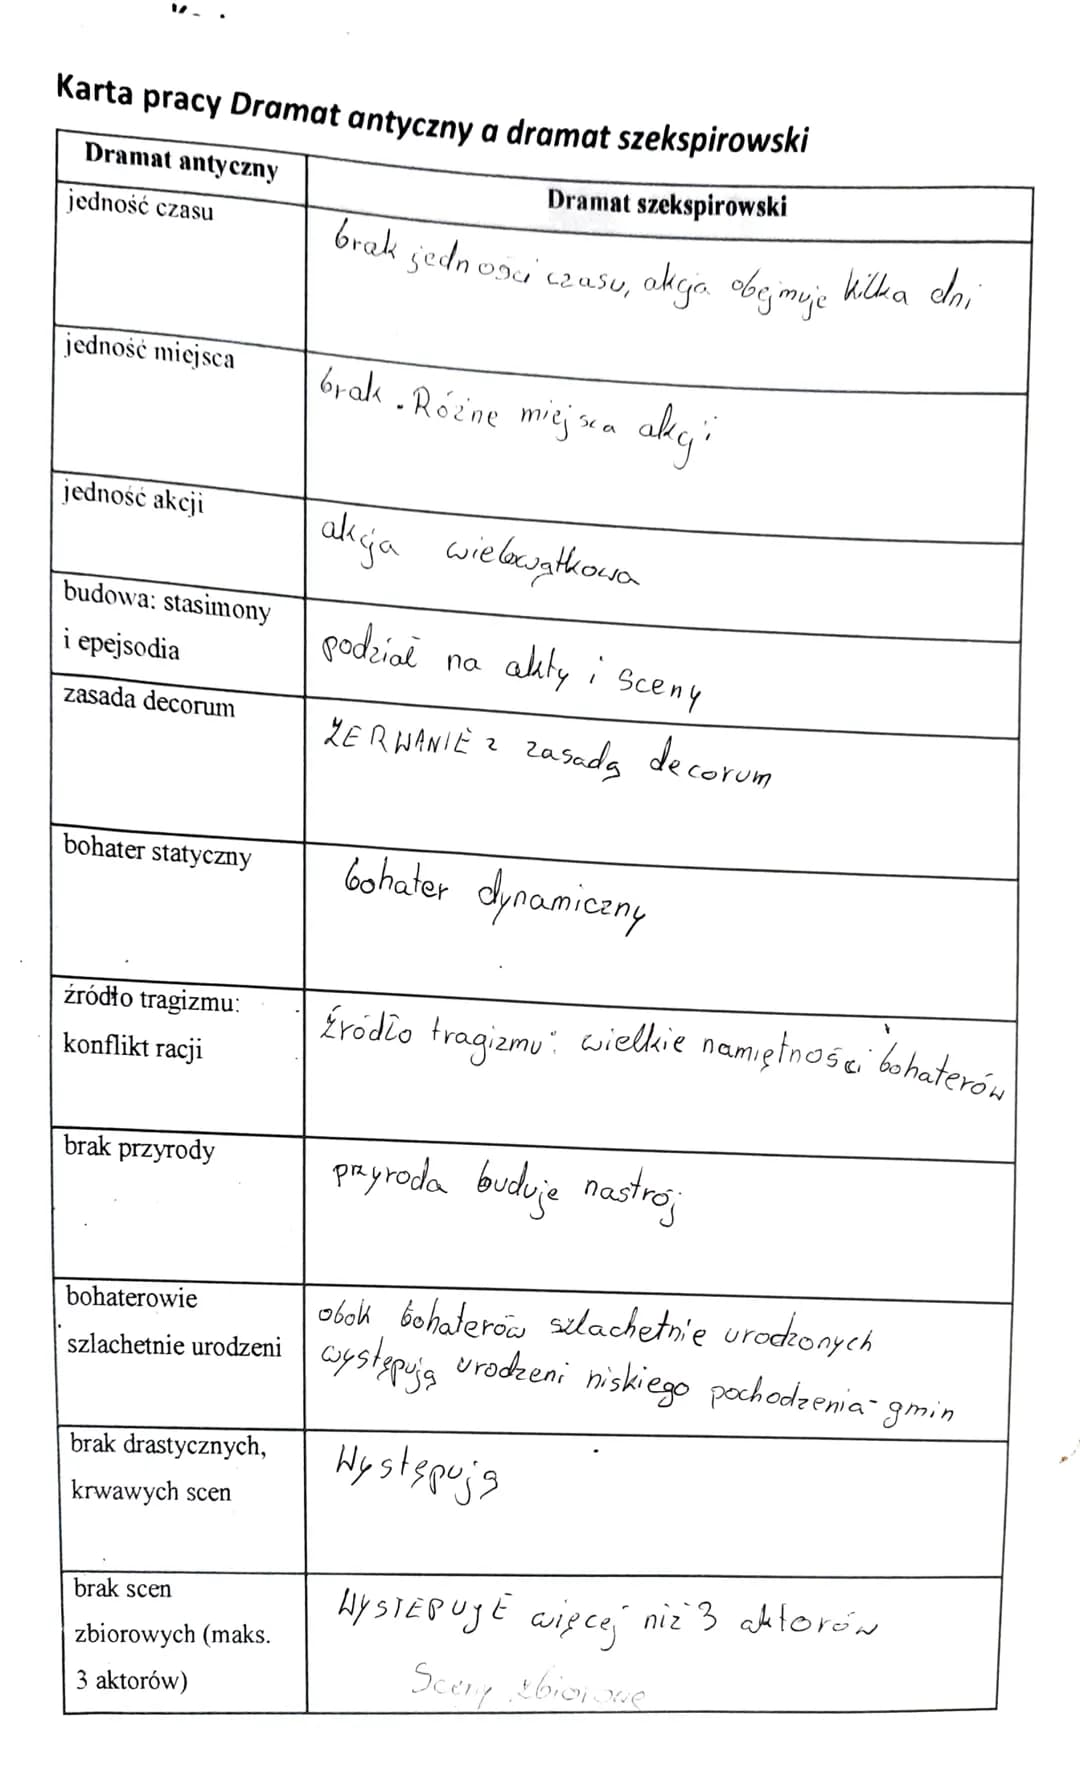 Karta pracy Dramat antyczny a dramat szekspirowski
Dramat antyczny
Dramat szekspirowski
jedność czasu
brak jedności czasu, akcja obejmuje kilka dni
jedność miejsca
brak. Różne miejsca akcji
jedność akcji
akcja wielowątkowa
budowa: stasimony
i epejsodia
podział na akty i sceny
zasada decorum
ZERWANIE z zasadą decorum
bohater statyczny
bohater dynamiczny
źródło tragizmu:
konflikt racji
Źródło tragizmu: wielkie namiętności bohaterów
brak przyrody
przyroda buduje nastrój
bohaterowie
szlachetnie urodzeni
obok bohaterów szlachetnie urodzonych
występują urodzeni niskiego pochodzenia - gmin
brak drastycznych,
krwawych scen
Występują
brak scen
zbiorowych (maks.
3 aktorów)
WYSTĘPUJE więcej niż 3 aktorów
Sceny zbiorowe